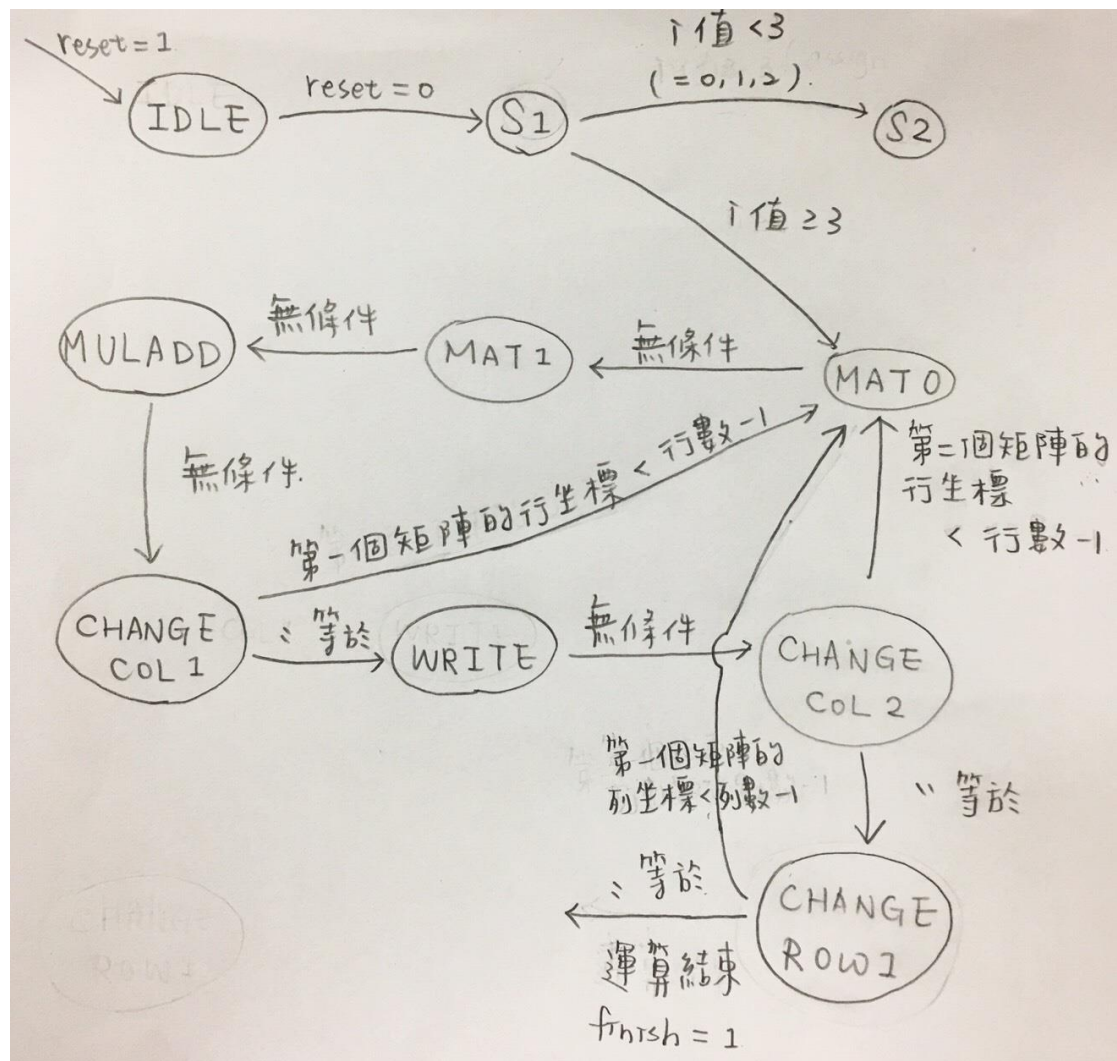 reset=1
IDLE
reset=0
S1
i值<3
(=0,1,2).
S2
i值≥3
MULADD
無條件
MAT1
無條件
MAT0
無條件.
第一個矩陣的行坐標<行數-1
第二個矩陣的
行坐標
<行數-1
CHANGE
COL1
〃等於
WRITE
無條件
CHANGE
COL2
第一個矩陣的
列坐標<列數-1
〃等於
〃等於
運算結束
finish=1
CHANGE
ROW1